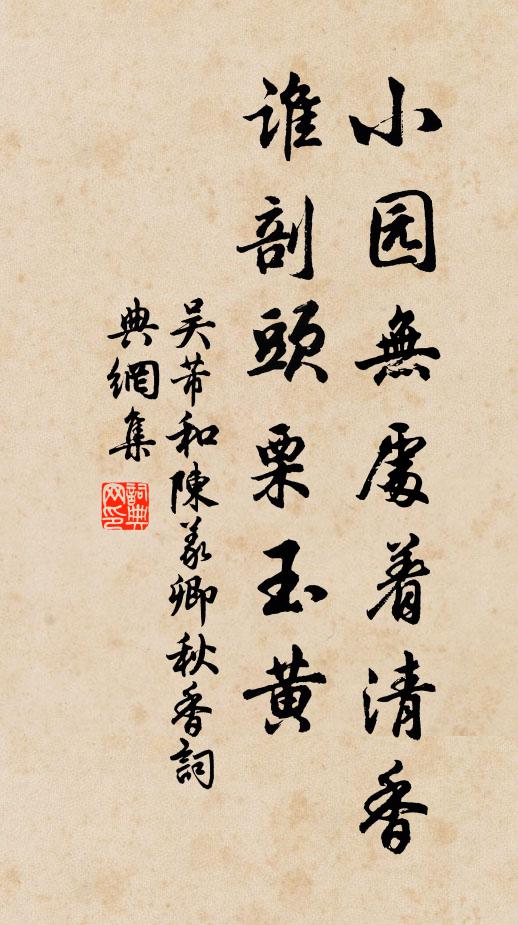 小园無處着清香
谁剖頭栗玉黄
吴芾和陳羲卿秋香詞
典網集
詞典网印